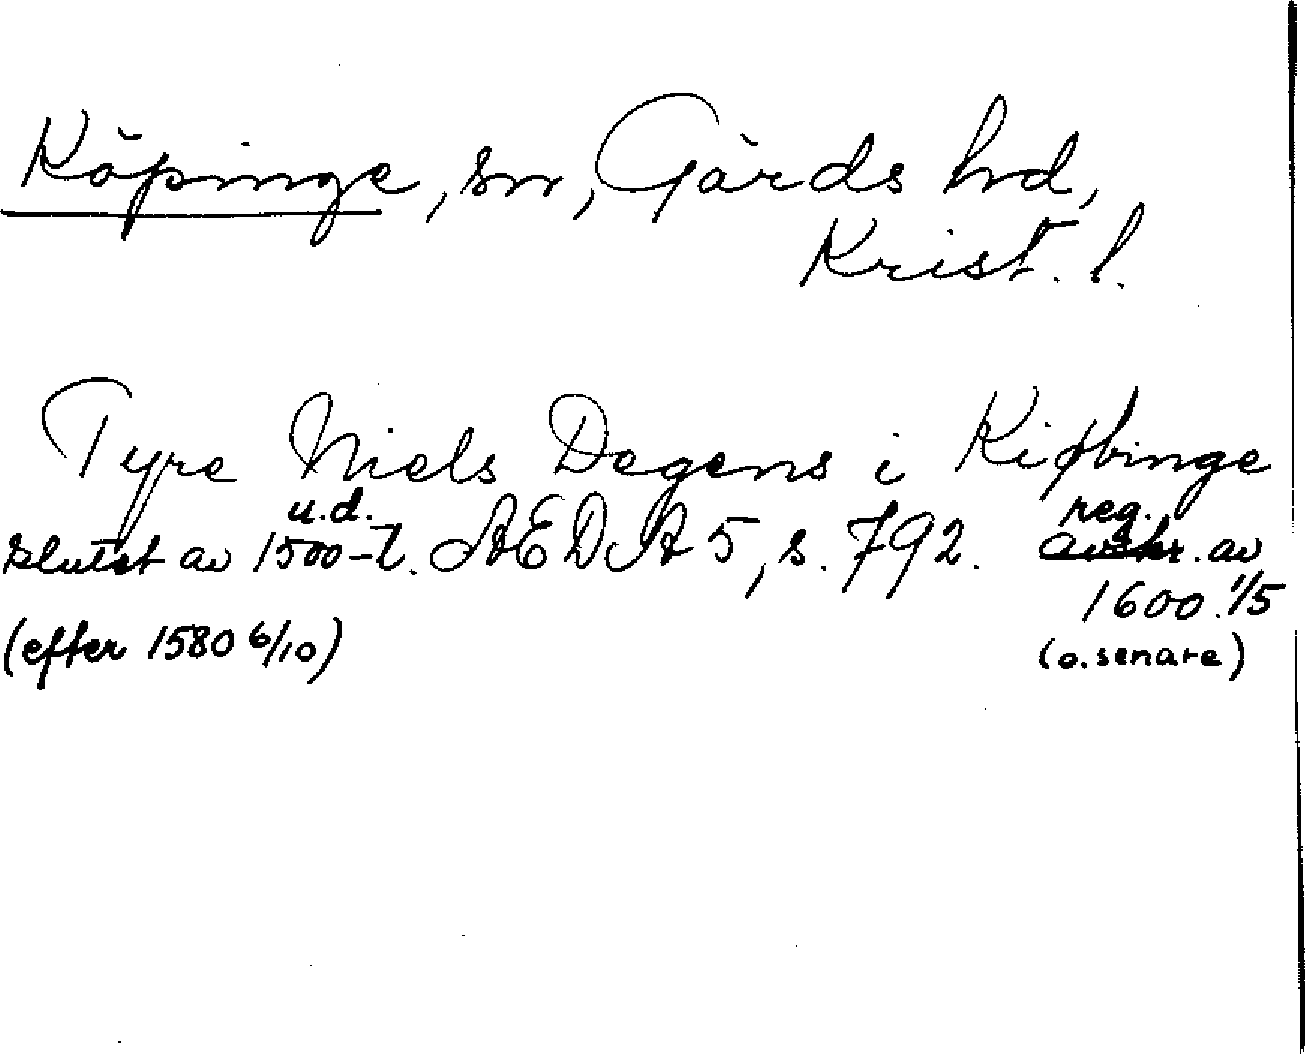 Köpinge, sn, Gärds hd,
Krist. l.
Tyre Niels Degens i Kiøbinge
u.d. reg.
slutet av 1500-t. AEDA 5, s. 792. avskr. av
1600 1/5
(efter 1580 6/10) (o. senare)